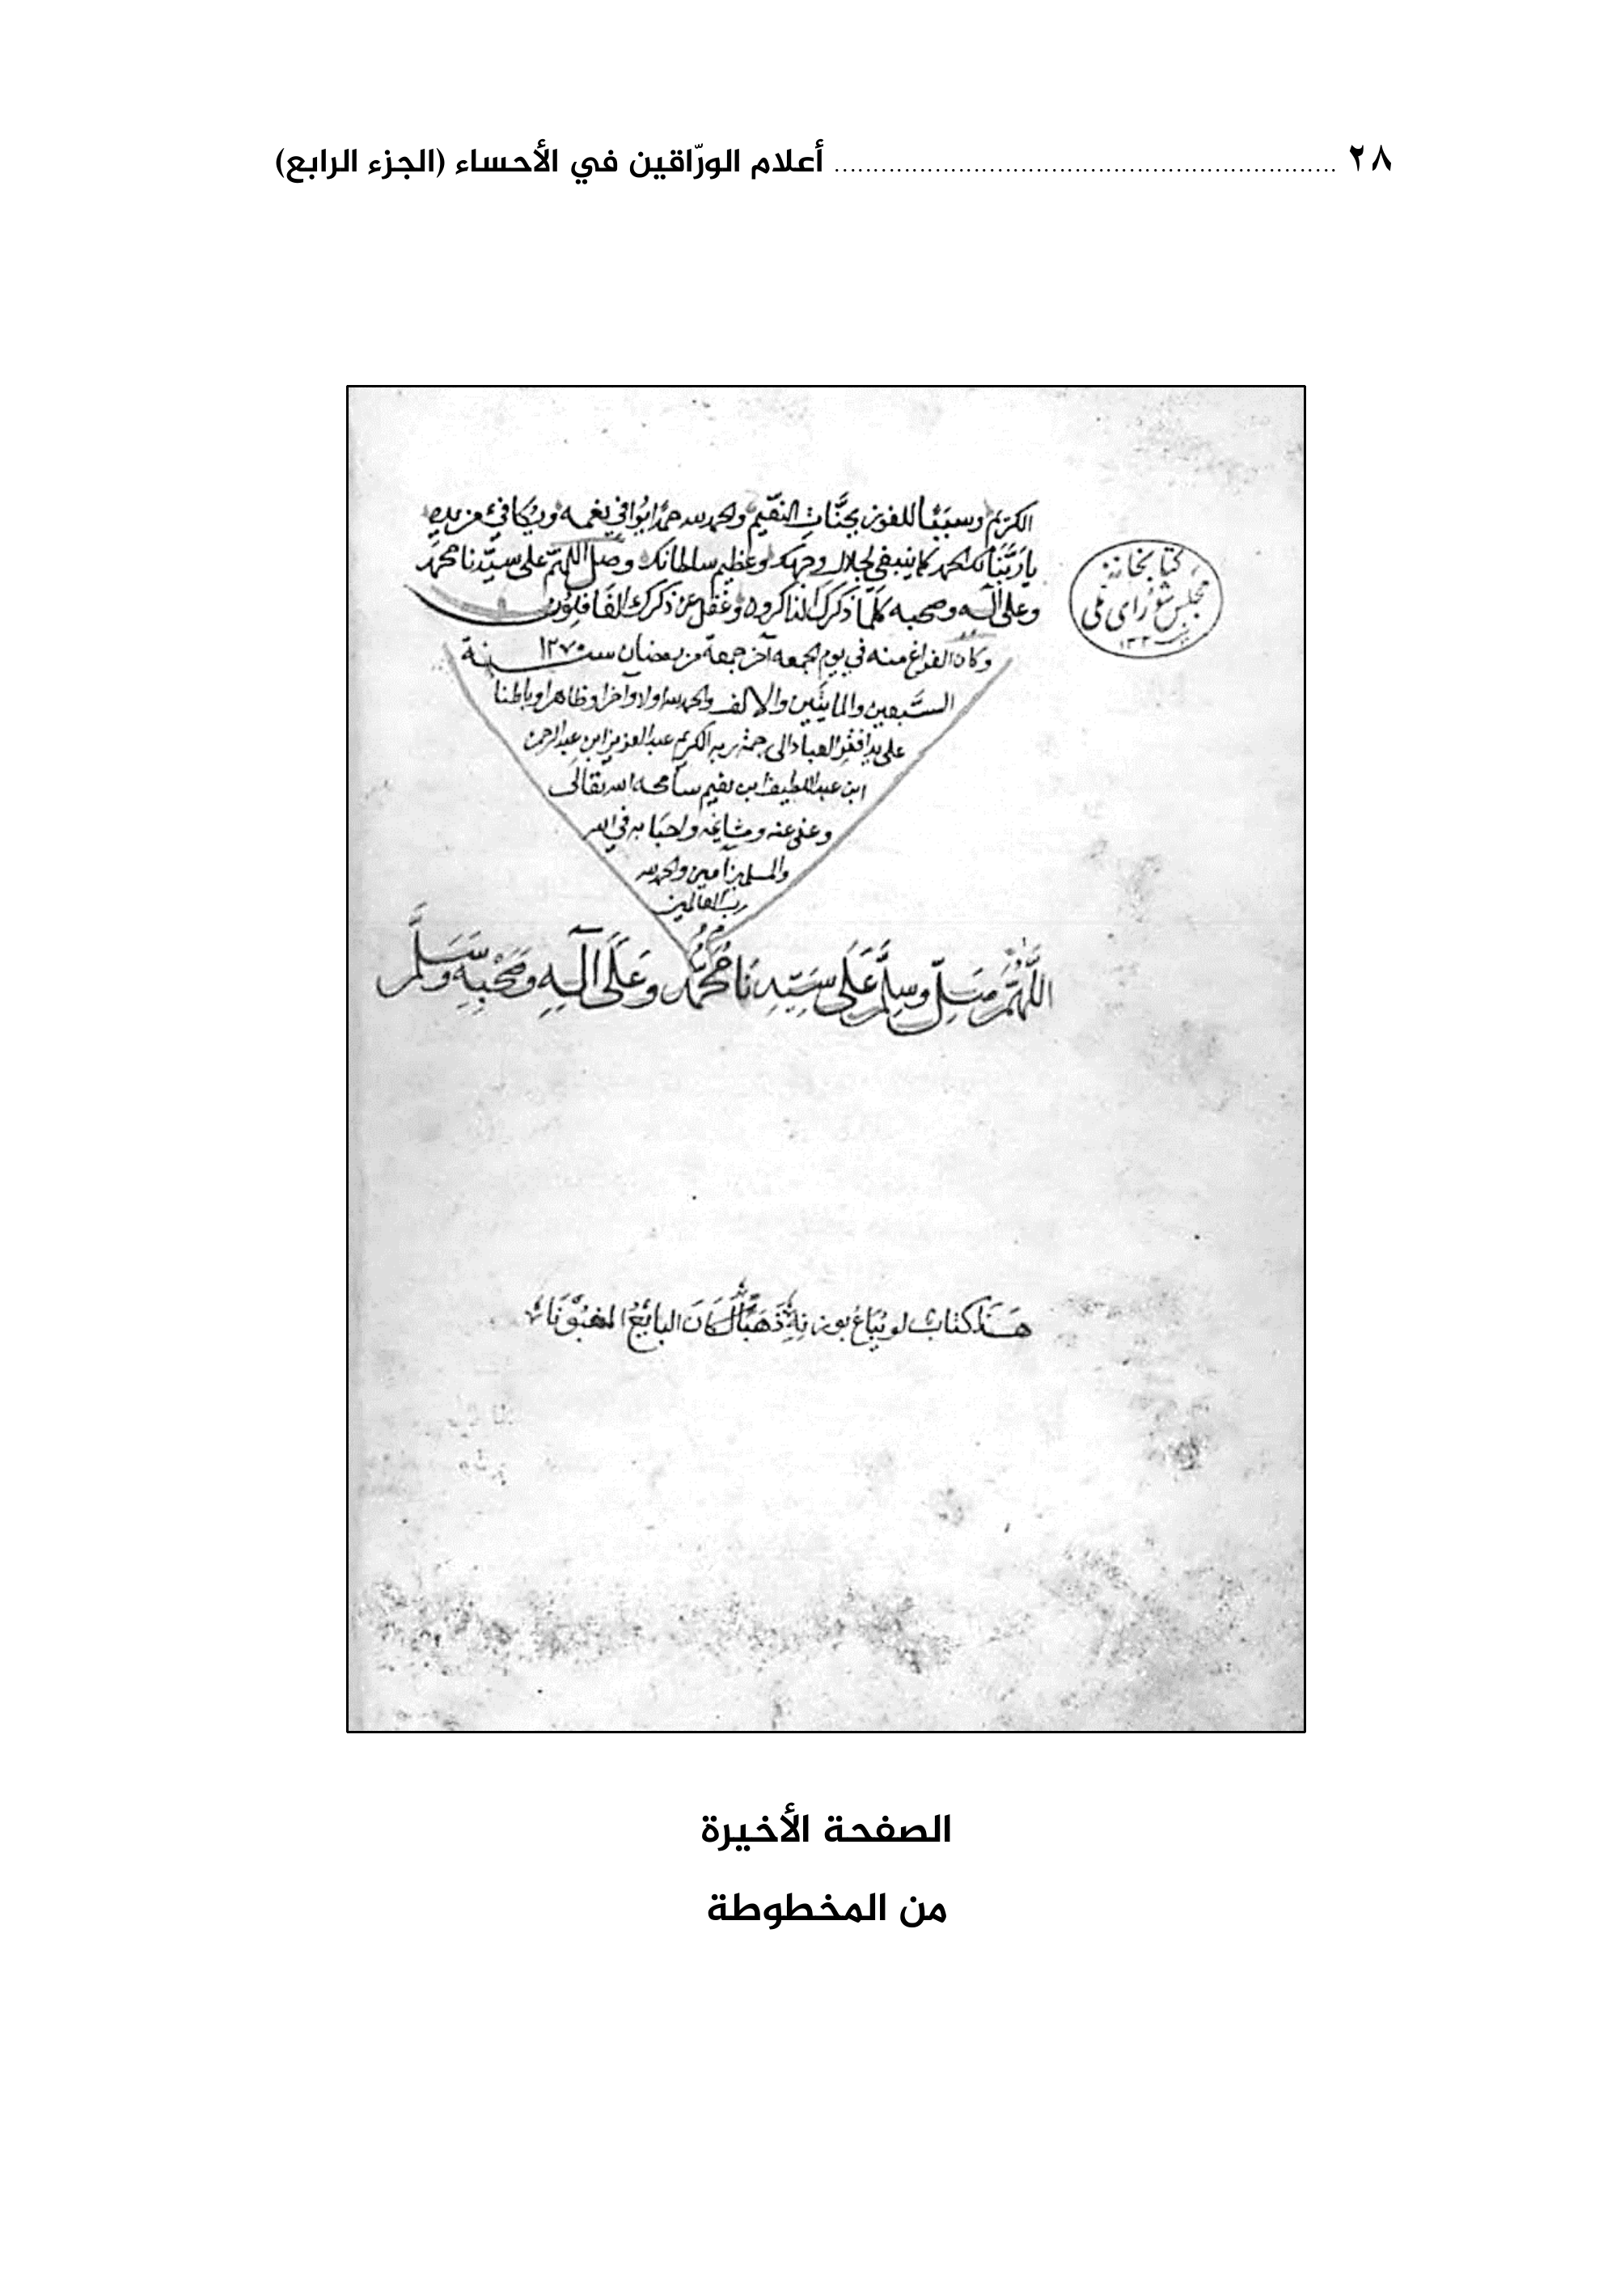 ٢٨ ................................................................ أعلام الورّاقين في الأحساء (الجزء الرابع)
الكريم وسببًا للفوز بجنَّات النعيم والحمد لله حمدًا يوافي نعمه ويكافئ مزيده
يا ربَّنا لك الحمد كما ينبغي لجلال وجهك وعظيم سلطانك وصل اللهم على سيّدنا محمد
وعلى آله وصحبه كلّما ذكرك الذاكرون وغفل عن ذكرك الغافلون
وكان الفراغ منه في يوم الجمعه آخر جمعة من رمضان سنة ١٢٧٠
السَّبعين والمايتين والالف والحمد لله اولا وآخرا وظاهرا وباطنا
على يد افقر العباد الى رحمة ربه الكريم عبد العزيز ابن عبد الرحمن
ابن عبد اللطيف ابن نعيم سامحه الله تعالى
وعفى عنه ومشايخه واحبابه في الله
والمسلمين آمين والحمد لله
رب العالمين
اللَّهُمَّ صَلِّ وسلِّم عَلَى سَيِّدِنَا مُحَمَّد وَعَلَى آلِهِ وصَحْبِهِ وَسَلَّم
هَذَا كتاب لو يُبَاعُ بوزنِهِ ذَهَبًا لكَانَ البائِعُ المغبُونَا
كتابخانه
مجلس شورای ملی
١٣٠٢
الصفحة الأخيرة
من المخطوطة